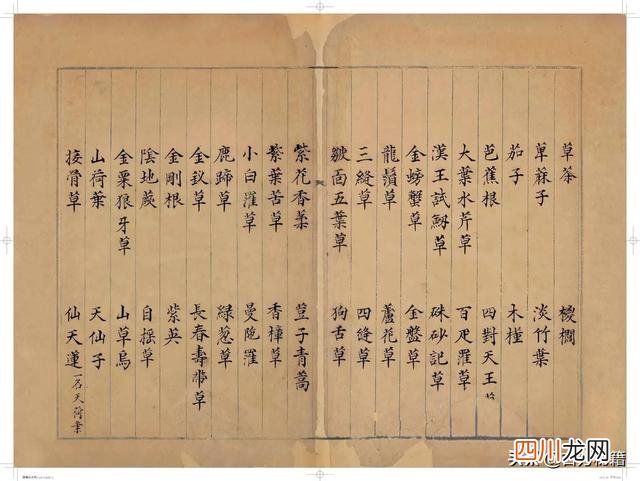 草茶 椶櫚
萆蔴子 淡竹葉
茄子 木槿
芭蕉根 四對天王草
大葉水芹草 百疋羅草
漢王試劒草 硃砂記草
金螃蟹草 金盤草
龍鬚草 蘆花草
三縫草 四縫草
皺面五葉草 狗舌草
紫花香菜 荳子青蒿
紫葉苦草 香樟草
小白羅草 曼陁羅
鹿蹄草 緑葱草
金釵草 長春壽帶草
金剛根 紫英
陰地蕨 自摇草
金粟狼牙草 山草烏
山荷葉 天仙子
接骨草 仙天蓮 一名天荷葉
四川龙网